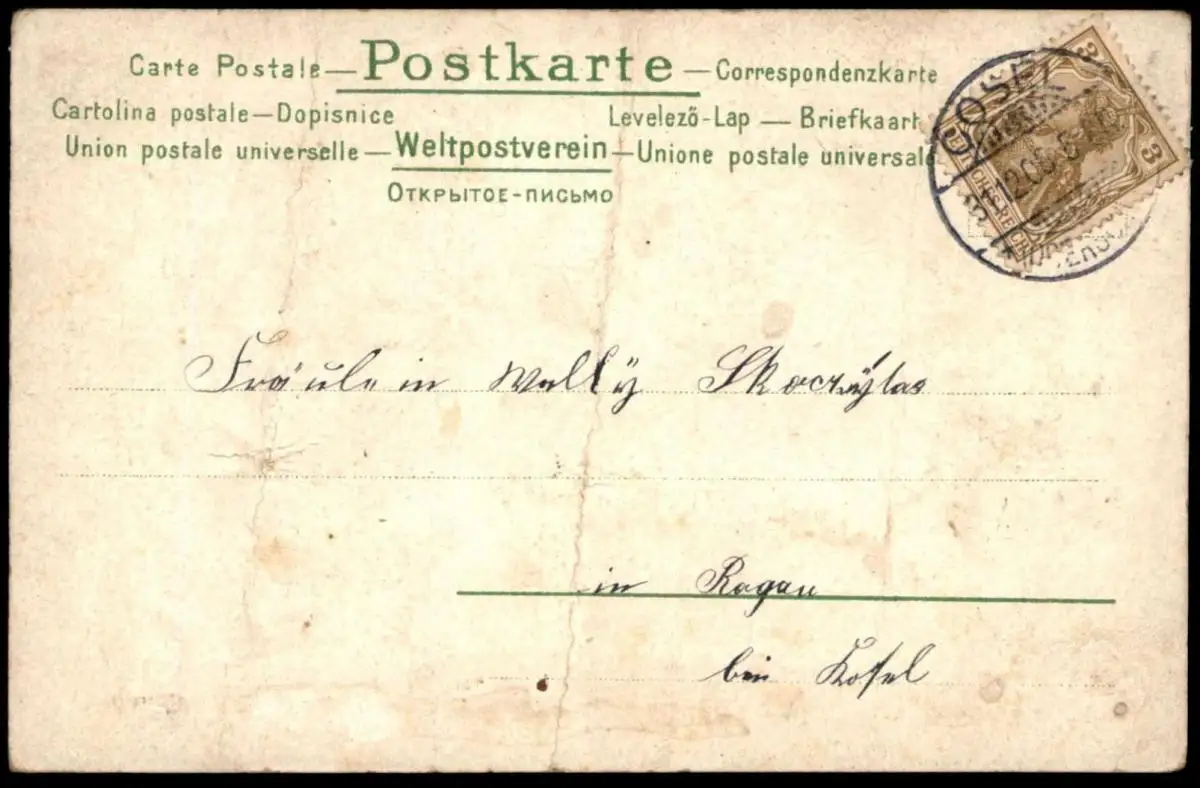 Carte Postale — Postkarte — Correspondenzkarte
Cartolina postale — Dopisnice Levelező-Lap — Briefkaart
Union postale universelle — Weltpostverein — Unione postale universale
ОТКРЫТОЕ-ПИСЬМО
3 3
DEUTSCHES REICH
COSEL
12.06.5
Fräulein Wally Skoczÿlas
in Rogau
bei Kosel